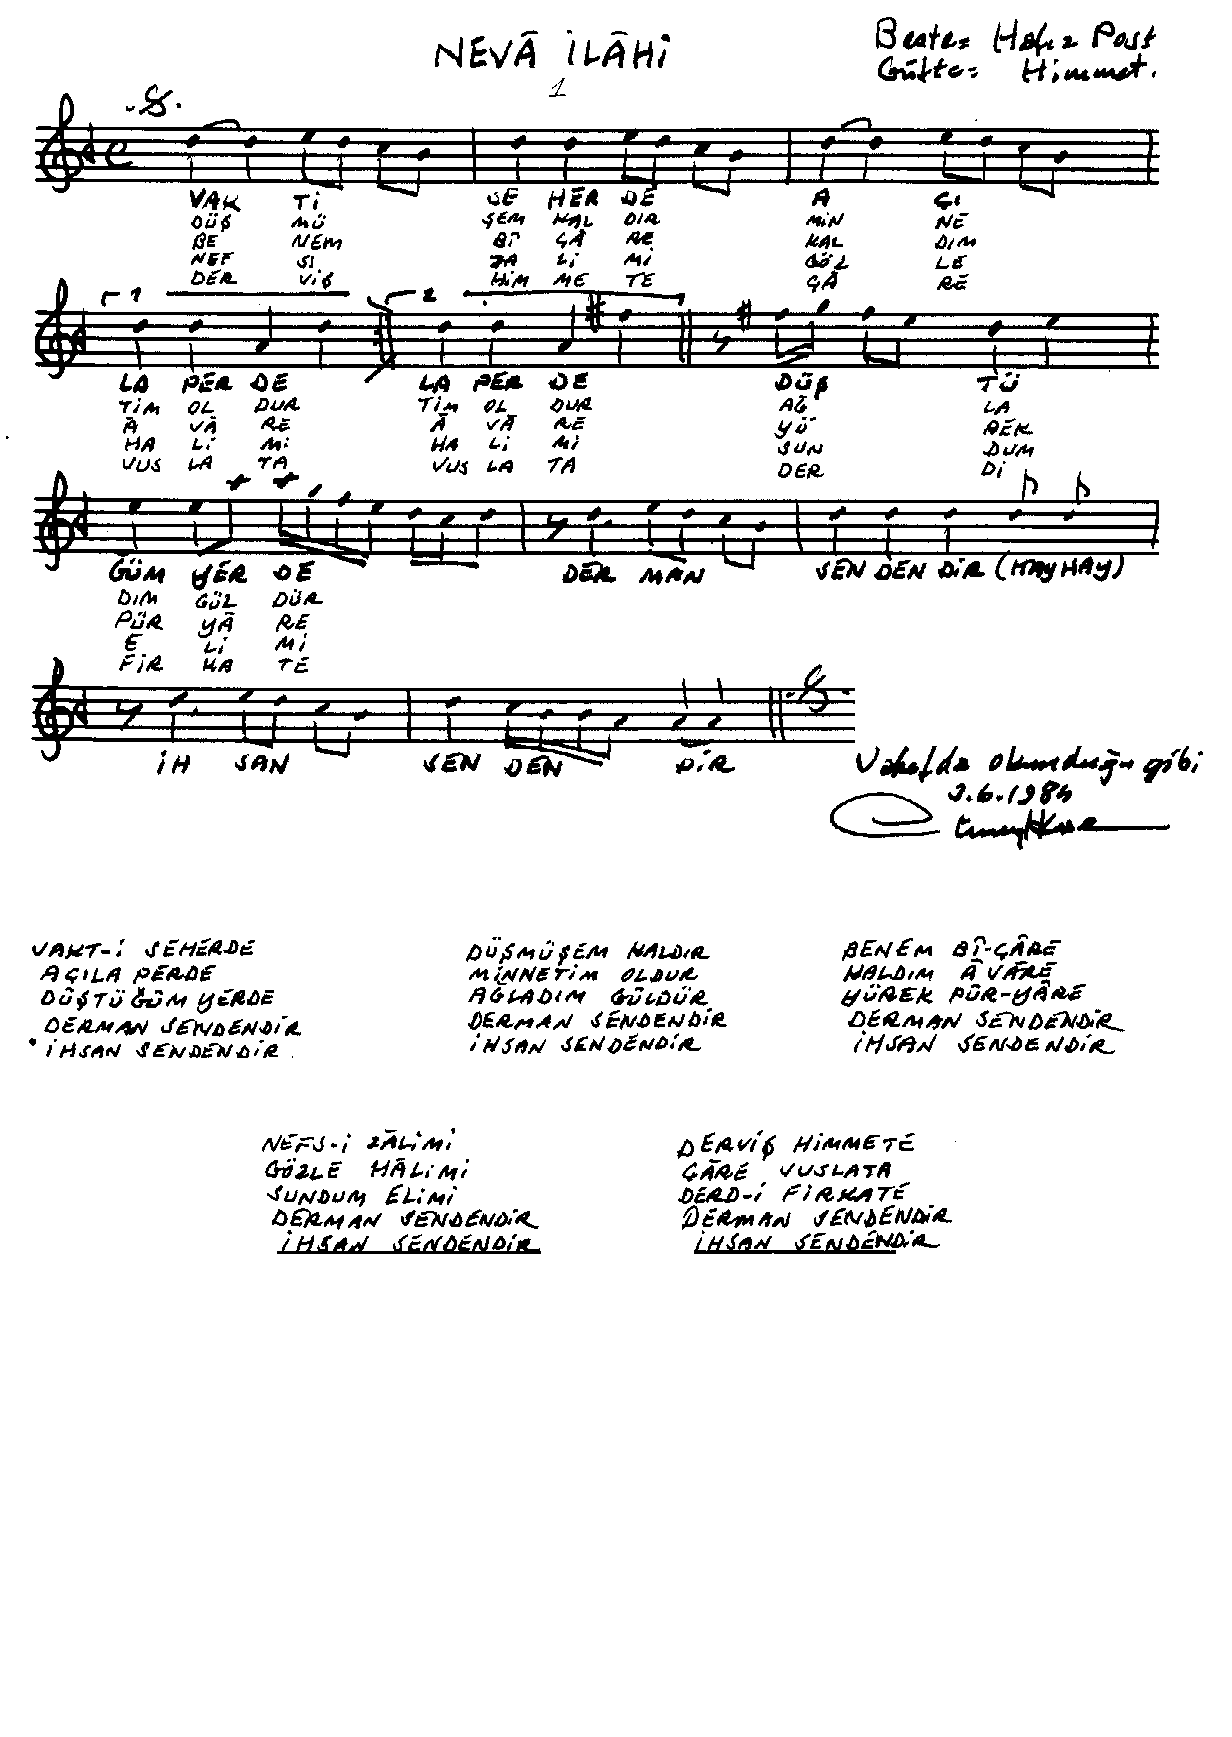 NEVÂ İLÂHİ
1
Beste= Hafız Post
Güfte= Himmet.
VAK Tİ SE HER DE A ÇI
DÜŞ MÜ ŞEM KAL DIR MİN NE
BE NEM BÎ ÇÂ RE KAL DIM
NEF Sİ ZA Lİ Mİ GÖZ LE
DER VİŞ HİM ME TE ÇÂ RE
1 2
LA PER DE LA PER DE DÜŞ TÜ
TİM OL DUR TİM OL DUR AĞ LA
Â VÂ RE Â VÂ RE YÜ REK
HA Lİ Mİ HA Lİ Mİ SUN DUM
VUS LA TA VUS LA TA DER Dİ
ĞÜM YER DE DER MAN SEN DEN DİR (HAY HAY)
DIM GÜL DÜR
PÜR YÂ RE
E Lİ Mİ
FİR KA TE
İH SAN SEN DEN DİR
Vakıfda okunduğu gibi
VAKT-İ SEHERDE
AÇILA PERDE
DÜŞTÜĞÜM YERDE
DERMAN SENDENDİR
İHSAN SENDENDİR.
DÜŞMÜŞEM KALDIR
MİNNETİM OLDUR
AĞLADIM GÜLDÜR
DERMAN SENDENDİR
İHSAN SENDENDİR
BENEM BÎ-ÇÂRE
KALDIM ÂVÂRE
YÜREK PÜR-YÂRE
DERMAN SENDENDİR
İHSAN SENDENDİR
NEFS-İ ZÂLİMİ
GÖZLE HÂLİMİ
SUNDUM ELİMİ
DERMAN SENDENDİR
İHSAN SENDENDİR
DERVİŞ HİMMETE
ÇÂRE VUSLATA
DERD-İ FİRKATE
DERMAN SENDENDİR
İHSAN SENDENDİR